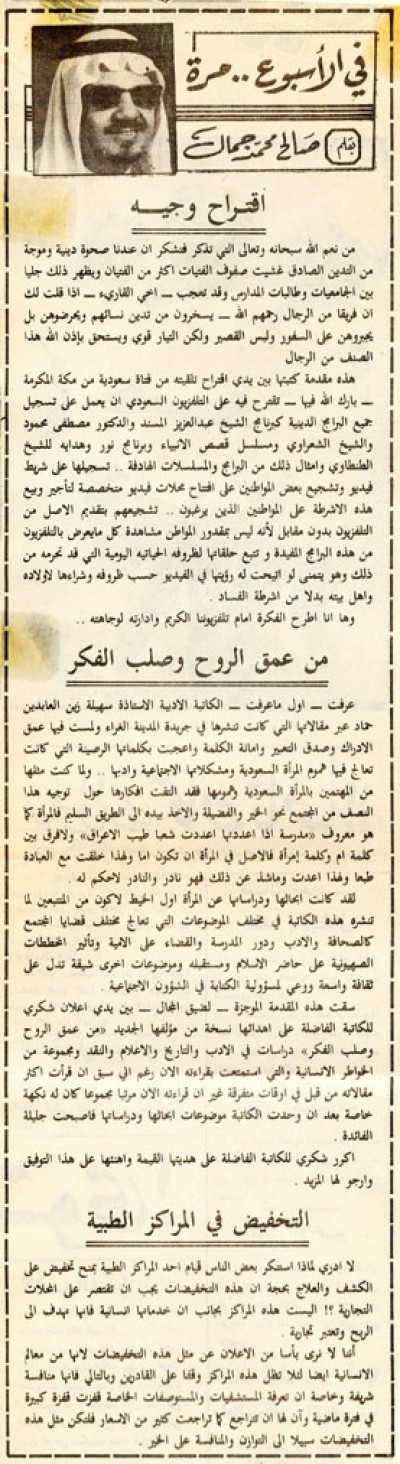 في الأسبوع .. مرة
بقلم صالح محمد جمال
اقتراح وجيه
من نعم الله سبحانه وتعالى التي تذكر فتشكر ان عندنا صحوة دينية وموجة
من التدين الصادق غشيت صفوف الفتيات اكثر من الفتيان ويظهر ذلك جليا
بين الجامعيات وطالبات المدارس وقد تعجب ــ اخي القاريء ــ اذا قلت لك
ان فريقا من الرجال رحمهم الله ــ يسخرون من تدين نسائهم ويحرضوهن بل
يجبروهن على السفور ولبس القصير ولكن التيار قوي ويستحق بإذن الله هذا
الصنف من الرجال
هذه مقدمة كتبتها بين يدي اقتراح تلقيته من فتاة سعودية من مكة المكرمة
ــ بارك الله فيها ــ تقترح فيه على التلفزيون السعودي ان يعمل على تسجيل
جميع البرامج الدينية كبرنامج الشيخ عبدالعزيز المسند والدكتور مصطفى محمود
والشيخ الشعراوي ومسلسل قصص الانبياء وبرنامج نور وهدايه للشيخ
الطنطاوي وامثال ذلك من البرامج والمسلسلات الهادفة .. تسجيلها على شريط
فيديو وتشجيع بعض المواطنين على افتتاح محلات فيديو متخصصة لتأجير وبيع
هذه الاشرطة على المواطنين الذين يرغبون .. تشجيعهم بتقديم الاصل من
التلفزيون بدون مقابل لأنه ليس بمقدور المواطن مشاهدة كل مايعرض بالتلفزيون
من هذه البرامج المفيدة و تتبع حلقاتها لظروفه الحياتيه اليومية التي قد تحرمه من
ذلك وهو يتمنى لو اتيحت له رؤيتها في الفيديو حسب ظروفه وشراءها لاولاده
واهل بيته بدلا من اشرطة الفساد .
وها انا اطرح الفكرة امام تلفزيوننا الكريم وادارته لوجاهته ..
من عمق الروح وصلب الفكر
عرفت ــ اول ماعرفت ــ الكاتبة الاديبة الاستاذة سهيلة زين العابدين
حماد عبر مقالاتها التي كانت تنشرها في جريدة المدينة الغراء ولمست فيها عمق
الادراك وصدق التعبير وامانة الكلمة واعجبت بكلماتها الرصينة التي كانت
تعالج فيها هموم المرأة السعودية ومشكلاتها الاجتماعية وادبها .. ولما كنت مثلها
من المهتمين بالمرأة السعودية وهمومها فقد التفت افكارها حول توجيه هذا
النصف من المجتمع نحو الخير والفضيلة والاخذ بيده الى الطريق السليم فالمرأة كما
هو معروف «مدرسة اذا اعددتها اعددت شعبا طيب الاعراق» ولافرق بين
كلمة ام وكلمة إمرأة فالاصل في المرأة ان تكون اما ولهذا خلقت مع العبادة
طبعا ولهذا اعدت وماشذ عن ذلك فهو نادر والنادر لاحكم له .
لقد كانت ابحاثها ودراساتها عن المرأة اول الخيط لاكون من المتتبعين لما
تنشره هذه الكاتبة في مختلف الموضوعات التي تعالج مختلف قضايا المجتمع
كالصحافة والادب ودور المدرسة والقضاء على الامية وتأثير المخططات
الصهيونية على حاضر الاسلام ومستقبله وموضوعات اخرى شيقة تدل على
ثقافة واسعة ووعي لمسؤولية الكتابة في الشؤون الاجتماعية .
سقت هذه المقدمة الموجزة ــ لضيق المجال ــ بين يدي اعلان شكري
للكاتبة الفاضلة على اهدائها نسخة من مؤلفها الجديد «من عمق الروح
وصلب الفكر» دراسات في الادب والتاريخ والاعلام والنقد ومجموعة من
الخواطر الانسانية والتي استمتعت بقراءته الان رغم اني سبق ان قرأت اكثر
مقالاته من قبل في اوقات متفرقة غير ان قراءته الان مرتبا مجموعا كان له نكهة
خاصة بعد ان وحدت الكاتبة موضوعات ابحاثها ودراساتها فاصبحت جليلة
الفائدة .
اكرر شكري للكاتبة الفاضلة على هديتها القيمة واهنئها على هذا التوفيق
وارجو لها المزيد .
التخفيض في المراكز الطبية
لا ادري لماذا استنكر بعض الناس قيام احد المراكز الطبية بمنح تخفيض على
الكشف والعلاج بحجة ان هذه التخفيضات يجب ان تقتصر على المحلات
التجارية ؟! اليست هذه المراكز بجانب ان خدماتها انسانية فانها تهدف الى
الربح وتعتبر تجارية .
أننا لا نرى بأسا من الاعلان عن مثل هذه التخفيضات لانها من معالم
الانسانية ايضا لئلا تظل هذه المراكز وقفا على القادرين وبالتالي فانها منافسة
شريفة وخاصة ان تعرفة المستشفيات والمستوصفات الخاصة قفزت قفزة كبيرة
في فترة ماضية وآن لها ان تتراجع كما تراجعت كثير من الاسعار فلتكن مثل هذه
التخفيضات سبيلا الى التوازن والمنافسة على الخير .